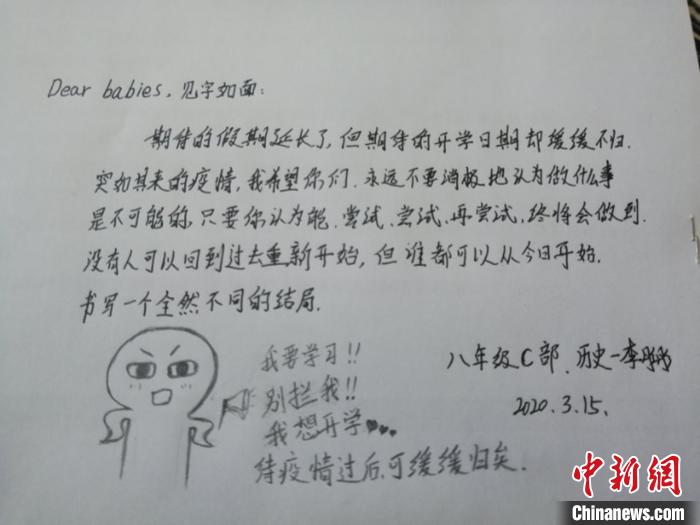 Dear babies, 见字如面:
期待的假期延长了,但期待的开学日期却缓缓不归.
突如其来的疫情,我希望你们.永远不要消极地认为做什么事
是不可能的,只要你认为能.尝试.尝试.再尝试.终将会做到.
没有人可以回到过去重新开始,但谁都可以从今日开始.
书写一个全然不同的结局.
我要学习!!
别拦我!!
我想开学
待疫情过后,可缓缓归矣.
八年级C部.历史-李彤彤
2020.3.15.
中新网
Chinanews.com